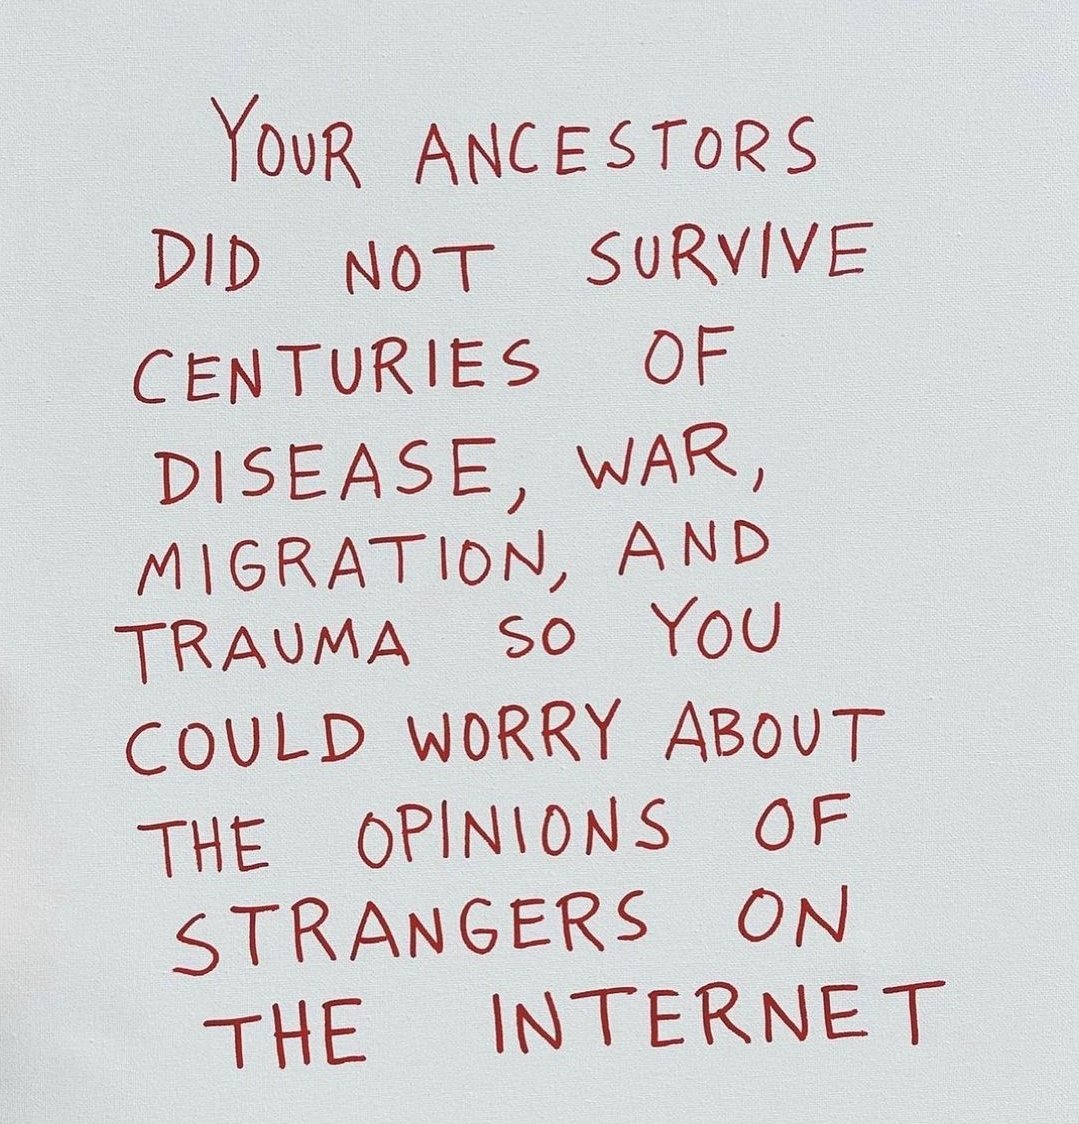 YOUR ANCESTORS
DID NOT SURVIVE
CENTURIES OF
DISEASE, WAR,
MIGRATION, AND
TRAUMA SO YOU
COULD WORRY ABOUT
THE OPINIONS OF
STRANGERS ON
THE INTERNET